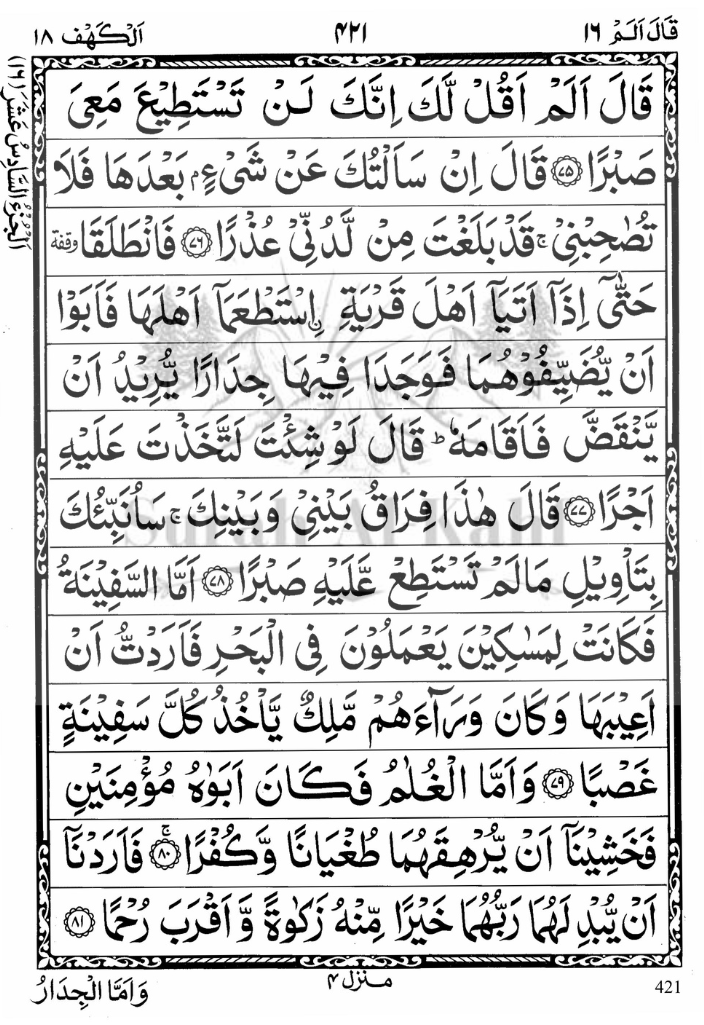 قَالَ اَلَمْ ١٦ ٤٢١ اَلْكَهْف ١٨
اَلْجُزْءُ السَّادِسُ عَشَرَ (١٦)
قَالَ اَلَمْ اَقُلْ لَّكَ اِنَّكَ لَنْ تَسْتَطِيْعَ مَعِىَ
صَبْرًا ﴿٧٥﴾ قَالَ اِنْ سَاَلْتُكَ عَنْ شَىْءٍۢ بَعْدَهَا فَلَا
تُصٰحِبْنِىْ ۚ قَدْ بَلَغْتَ مِنْ لَّدُنِّىْ عُذْرًا ﴿٧٦﴾ فَانْطَلَقَا وقفة
حَتّٰٓى اِذَاۤ اَتَيَاۤ اَهْلَ قَرْيَةِ ۨاسْتَطْعَمَاۤ اَهْلَهَا فَاَبَوْا
اَنْ يُّضَيِّفُوْهُمَا فَوَجَدَا فِيْهَا جِدَارًا يُّرِيْدُ اَنْ
يَّنْقَضَّ فَاَقَامَهٗ ؕ قَالَ لَوْ شِئْتَ لَتَّخَذْتَ عَلَيْهِ
اَجْرًا ﴿٧٧﴾ قَالَ هٰذَا فِرَاقُ بَيْنِىْ وَبَيْنِكَ ۚ سَاُنَبِّئُكَ
بِتَاْوِيْلِ مَا لَمْ تَسْتَطِعْ عَّلَيْهِ صَبْرًا ﴿٧٨﴾ اَمَّا السَّفِيْنَةُ
فَكَانَتْ لِمَسٰكِيْنَ يَعْمَلُوْنَ فِى الْبَحْرِ فَاَرَدْتُّ اَنْ
اَعِيْبَهَا وَكَانَ وَرَآءَهُمْ مَّلِكٌ يَّاْخُذُ كُلَّ سَفِيْنَةٍ
غَصْبًا ﴿٧٩﴾ وَاَمَّا الْغُلٰمُ فَكَانَ اَبَوٰهُ مُؤْمِنَيْنِ
فَخَشِيْنَاۤ اَنْ يُّرْهِقَهُمَا طُغْيَانًا وَّكُفْرًا ﴿٨٠﴾ ۚ فَاَرَدْنَاۤ
اَنْ يُّبْدِلَهُمَا رَبُّهُمَا خَيْرًا مِّنْهُ زَكٰوةً وَّاَقْرَبَ رُحْمًا ﴿٨١﴾
421 منزل ٤ وَاَمَّا الْجِدَارُ